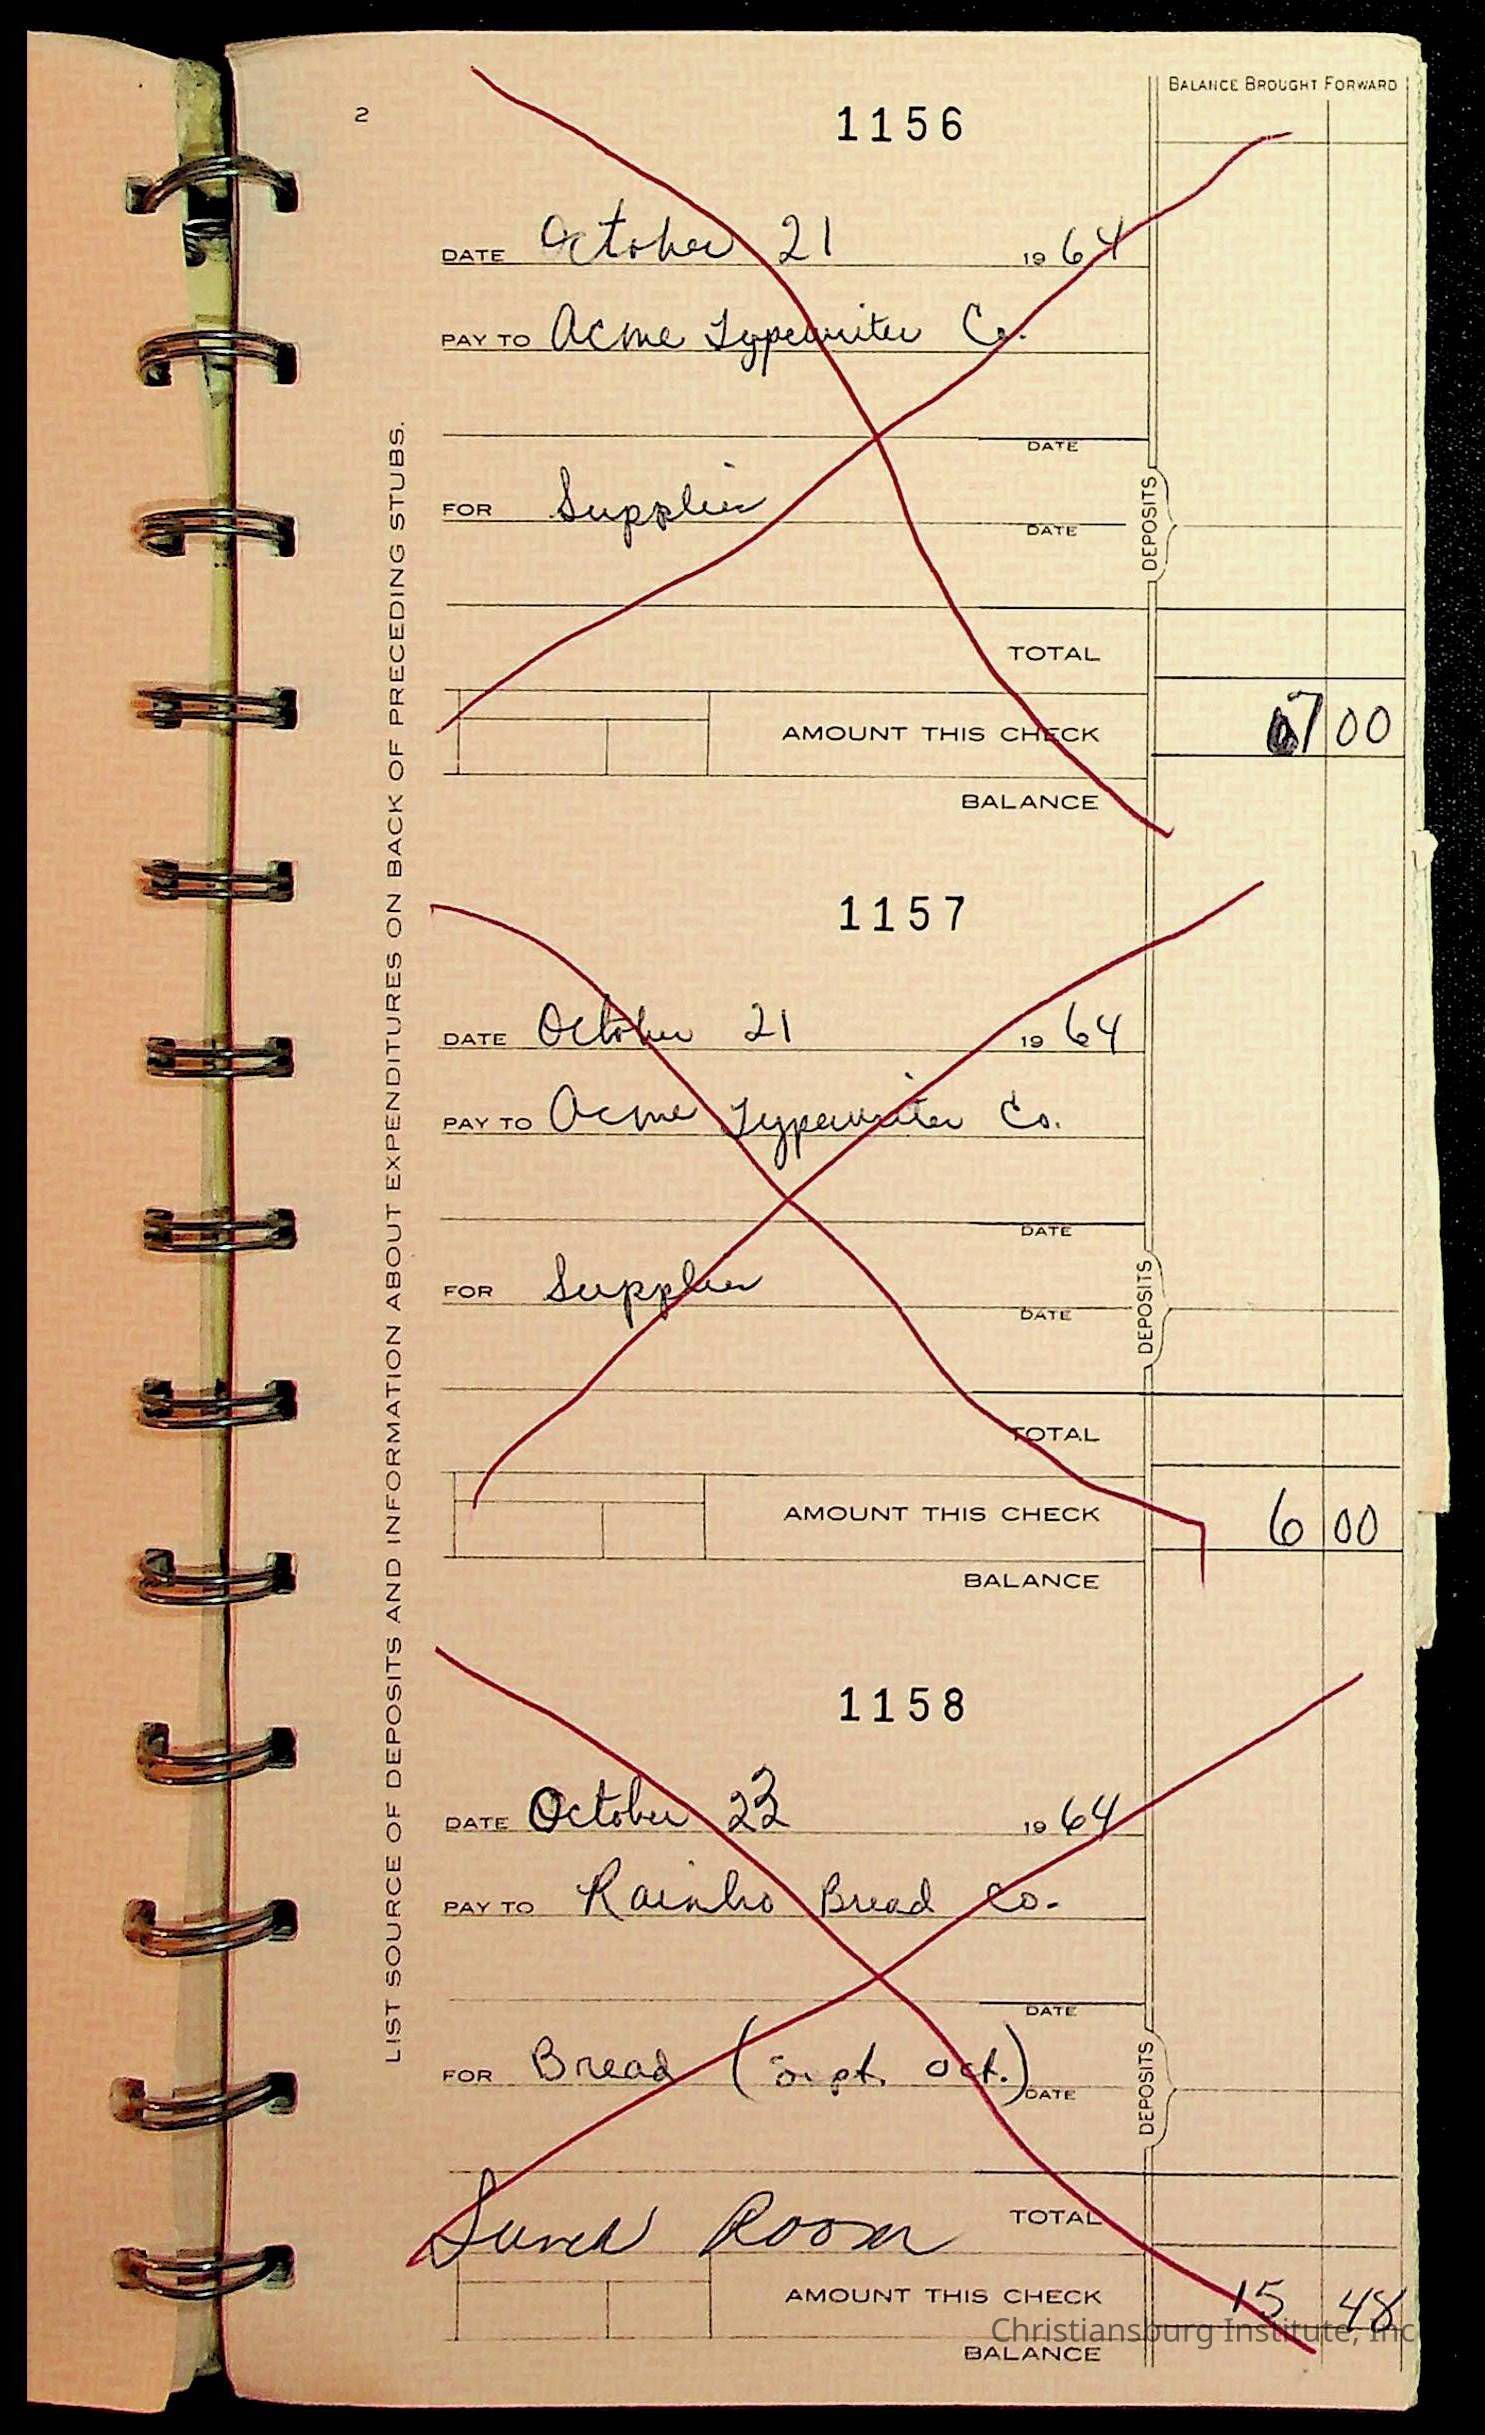 BALANCE BROUGHT FORWARD
2
1156
DATE October 21 1964
PAY TO Acme Typewriter Co.
DATE
FOR Supplies
DATE
DEPOSITS
TOTAL
AMOUNT THIS CHECK 7 00
BALANCE
LIST SOURCE OF DEPOSITS AND INFORMATION ABOUT EXPENDITURES ON BACK OF PRECEDING STUBS.
1157
DATE October 21 1964
PAY TO Acme Typewriter Co.
DATE
FOR Supplies
DATE
DEPOSITS
TOTAL
AMOUNT THIS CHECK 6 00
BALANCE
1158
DATE October 1964
PAY TO Rainbo Bread Co.
DATE
FOR Bread (Sept. Oct.)
DATE
DEPOSITS
Lunch Room TOTAL
AMOUNT THIS CHECK 15 48
Christiansburg Institute, Inc
BALANCE